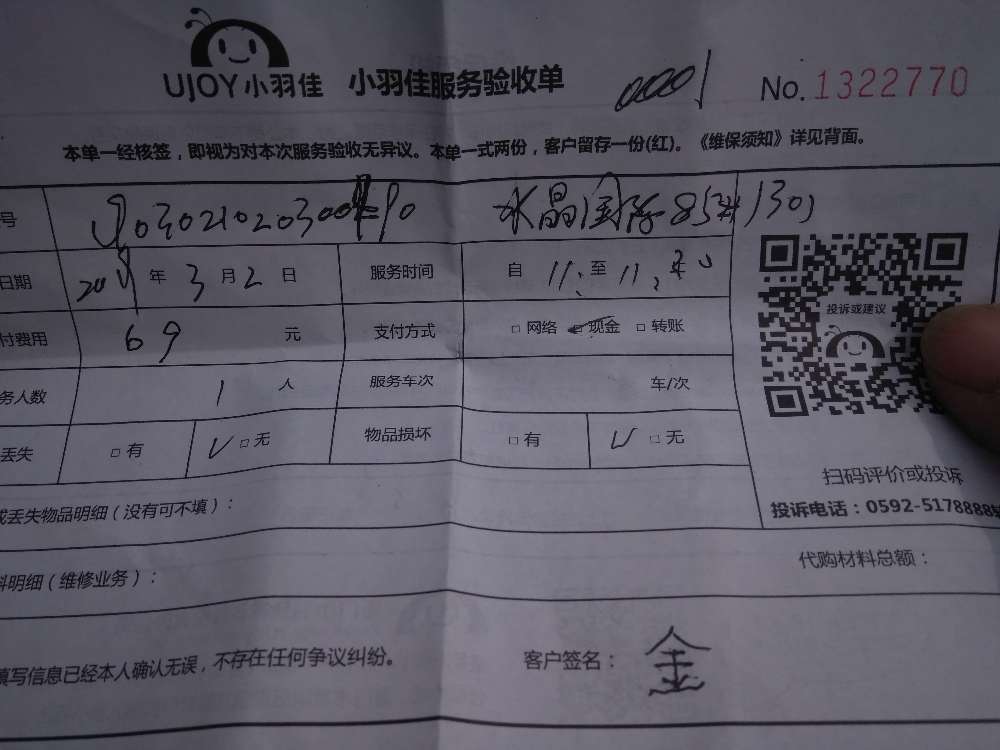 UJOY小羽佳 小羽佳服务验收单 0001 No.1322770
本单一经核签，即视为对本次服务验收无异议。本单一式两份，客户留存一份(红)。《维保须知》详见背面。
号 水晶国际85# 1301
日期 年 3 月 2 日 服务时间 自 11: 至 11:
付费用 69 元 支付方式 □ 网络 □ 现金 □ 转账
投诉或建议
务人数 1 人 服务车次 车/次
丢失 □ 有 □ 无 物品损坏 □ 有 □ 无
扫码评价或投诉
或丢失物品明细（没有可不填）：
投诉电话：0592-5178888
料明细（维修业务）： 代购材料总额：
填写信息已经本人确认无误，不存在任何争议纠纷。 客户签名： 金